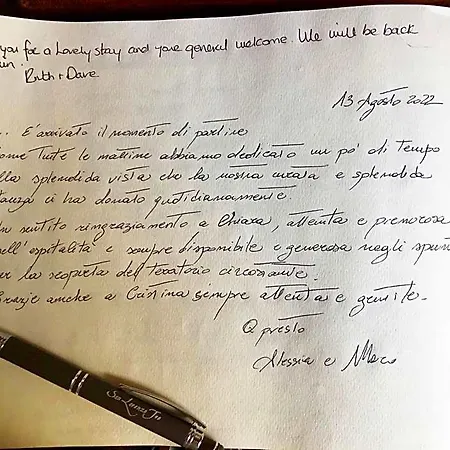 you for a lovely stay and your general welcome. We will be back
Ruth + Dave
13 Agosto 2022
... È arrivato il momento di partire
come tutte le mattine abbiamo dedicato un po' di tempo
alla splendida vista che la nostra curata e splendida
stanza ci ha donato quotidianamente.
Un sentito ringraziamento a Chiara, attenta e premurosa
nell'ospitalità e sempre disponibile e generosa negli spunti
per la scoperta del territorio circostante.
Grazie anche a Cristina sempre attenta e gentile.
A presto
Alessia e Marco